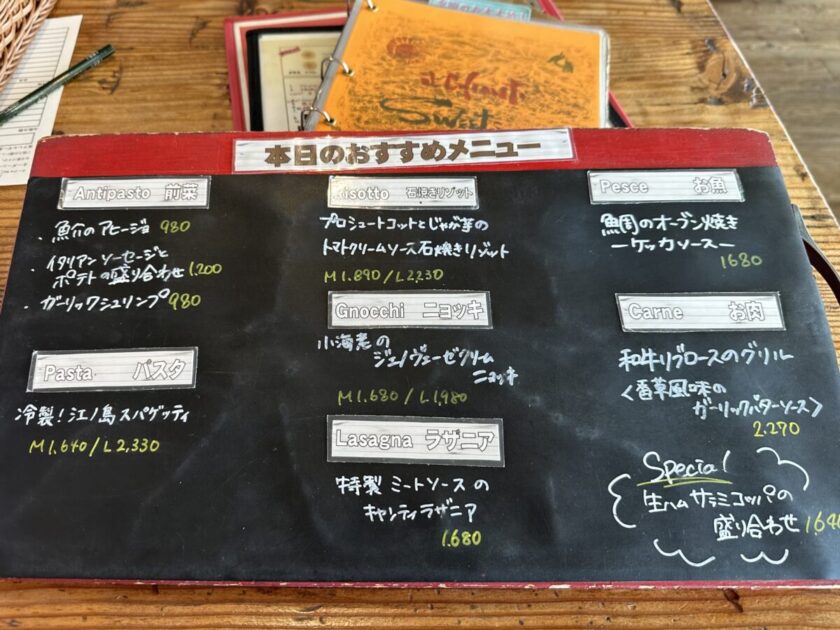 Sweet
本日のおすすめメニュー
Antipasto 前菜
・魚介のアヒージョ 980
・イタリアンソーセージと
ポテトの盛り合わせ 1.200
・ガーリックシュリンプ 980
Pasta パスタ
冷製!江ノ島スパゲッティ
M 1.640 / L 2.330
Risotto 石焼きリゾット
プロシュートコットとじゃが芋の
トマトクリームソース石焼きリゾット
M 1.890 / L 2.230
Gnocchi ニョッキ
小海老の
ジェノヴェーゼクリーム
ニョッキ
M 1.680 / L 1,980
Lasagna ラザニア
特製 ミートソースの
キャンティラザニア
1.680
Pesce お魚
鯛のオーブン焼き
ーケッカソースー
1680
Carne お肉
和牛リブロースのグリル
<香草風味の
ガーリックバターソース>
2.270
Special
生ハムサラミコッパの
盛り合わせ 1,640